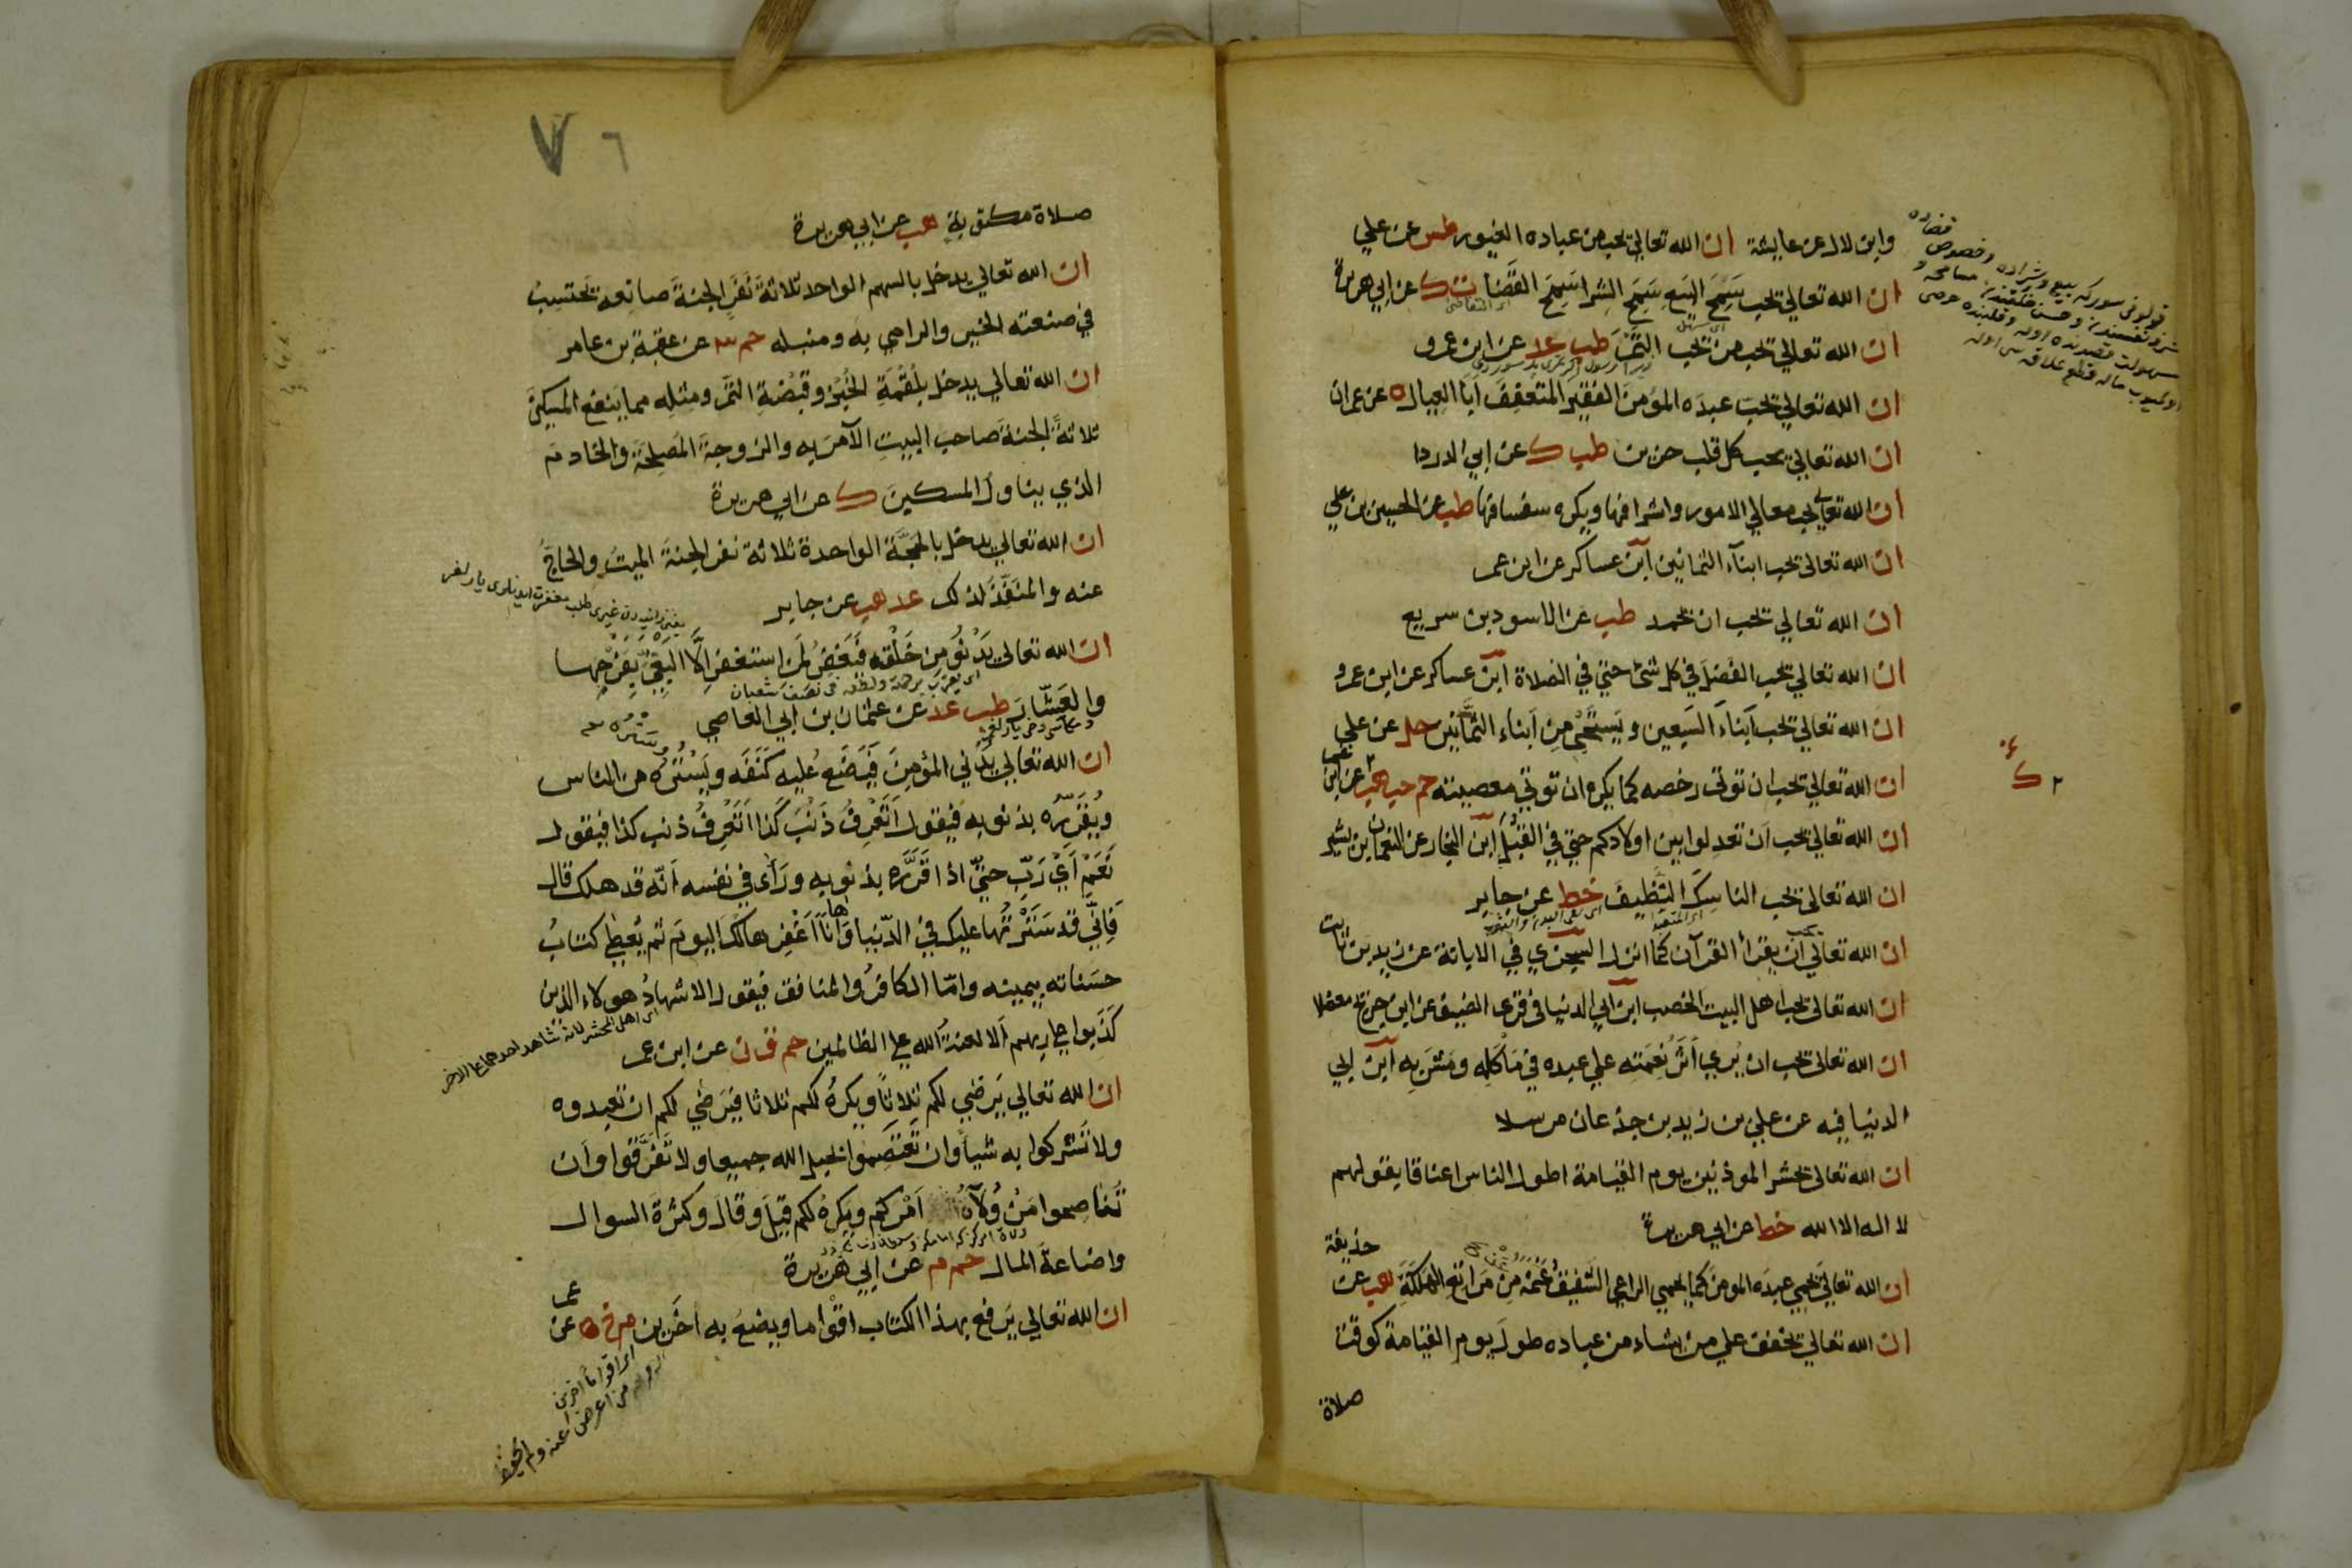 وابن لال عن عايشة ان الله تعالى يحب من عباده الغيور طس عن علي
ان الله تعالى يحب سَمْحَ البيع سَمْحَ الشرا سَمْحَ القضا ت ك عن ابي هريرة
ان الله تعالى يحب من يحب التمْرَ طب عد عن ابن عمرو
ان الله تعالى يحب عبدَه المؤمنَ الفقيرَ المتعففَ ابا العيال ه عن عمران
ان الله تعالى يحب كل قلب حزين طب ك عن ابي الدردا
ان الله تعالى يحب معالي الامور واشرافها ويكره سفسافها طب عن الحسين بن علي
ان الله تعالى يحب ابنآء الثمانين ابن عساكر عن ابن عمر
ان الله تعالى يحب ان يحمد طب عن الاسود بن سريع
ان الله تعالى يحب الفضلَ في كل شئ حتى في الصلاة ابن عساكر عن ابن عمرو
ان الله تعالى يحب اَبناءَ السَبعين ويَستحْيِ مِن اَبناء الثمانين حل عن علي
ان الله تعالى يحب ان توتى رخصه كما يكره ان توتى معصيته حم حب هب عن ابن عمر
ك
ان الله تعالى يحب اَن تعدلوا بين اولادكم حتى في القُبَل ابن النجار عن النعمان بن بشير
ان الله تعالى يحب الناسِكَ النَّظِيفَ خط عن جابر
ان الله تعالى يحب ان يقرأ القرآن كما انزل السجزي في الابانة عن زيد بن ثابت
ان الله تعالى يحب اهل البيت الخصب ابن ابي الدنيا في قرى الضيف عن ابن جريج معضلا
ان الله تعالى يحب ان يُرى اَثَرُ نِعْمَتِه على عبده في مَأْكَلِه ومَشْرَبِه ابن ابي
الدنيا فيه عن علي بن زيد بن جذعان مرسلا
ان الله تعالى يحشر الموذنين يوم القيامة اطول الناس اعناقا بقولهم
لا اله الا الله خط عن ابي هريرة
ان الله تعالى يحمي عبدَه المومنَ كما يحمي الراعي الشفيقُ غنمَه مِن مَرَاتعِ الهَلَكَةِ هب عن حذيفة
ان الله تعالى يخفف على من يشاء من عباده طولَ يوم القيامة كوقت
صلاة
٧ ٦
صلاة مكتوبةٍ هب عن ابي هريرة
ان الله تعالى يدخل بالسهم الواحد ثلاثةَ نَفَرٍ الجنةَ صانِعه يَحْتَسِبُ
في صنعته الخير والرامي به ومنبله حم ٣ عن عقبة بن عامر
ان الله تعالى يدخل بلُقْمَةِ الخُبْزِ وقَبْضَةِ التمْرِ ومثلِه مما ينفع المسكينَ
ثلاثةً الجنةَ صاحبَ البيتِ الآمرَ به والزوجةَ المصلحَةَ والخادمَ
الذي يناولُ المسكينَ ك عن ابي هريرة
ان الله تعالى يدخل بالحَجَّة الواحدة ثلاثة نفر الجنةَ الميتَ والحاجَّ
عنه والمنَفِّذَ لذلك عد هب عن جابر
ان الله تعالى يَدْنُو مِن خَلْقِه فيَغفرُ لمن استغفر اِلاَّ البَغِيَّ بِفَرْجِها
والعَشَّارَ طب عد عن عثمان بن ابي العاصي
ان الله تعالى يُدْني المؤمِنَ فيَضَع عَليه كَنَفَه ويَسْتُرُه من الناس
ويُقَرِّرُه بذنوبه فيقول اَتَعْرِفُ ذَنْبَ كَذا اَتَعْرِفُ ذنب كذا فيقول
نَعَمْ اَيْ رَبِّ حتى اذا قَرَّرَه بذنوبه ورَأى في نفسه اَنّه قد هلك قال
فَاِنِّي قد سَتَرْتُها عليك في الدّنيا واَنا اَغْفِرها لَكَ اليومَ ثم يُعْطى كتابَ
حسَناته بيمينه وامّا الكافرُ والمنافق فيقول الاشهادُ هولاء الذين
كَذَبوا على ربهم اَلا لعنةُ الله على الظالمين حم ق ن ه عن ابن عمر
ان الله تعالى يَرضى لكم ثلاثًا ويكرهُ لكم ثلاثا فيَرضى لكم ان تعبدوه
ولا تشركوا به شيأ وان تَعْتَصِموا بحبل الله جميعا ولا تَفَرَّقوا واَن
تُناصِحوا مَنْ وَلاّهُ اَمْرَكم ويكرهُ لكم قيلَ وقالَ وكثرةَ السوال
واضاعةَ المال حم م عن ابي هُريرة
ان الله تعالى يَرفع بهذا الكتاب اقْوَاما ويضعُ به اخَرين م ه عن عمر